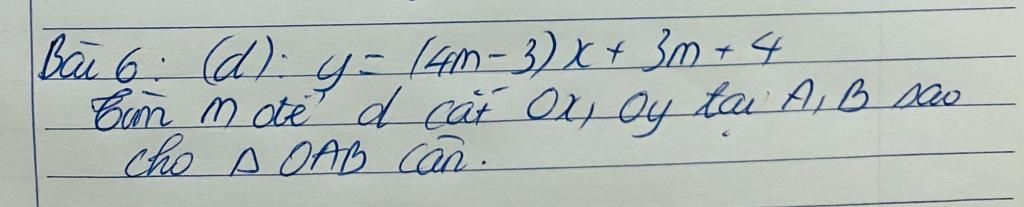 Bài 6: (d): y = (4m - 3)x + 3m + 4
Tìm m để d cắt Ox, Oy tại A, B sao
cho Δ OAB cân.